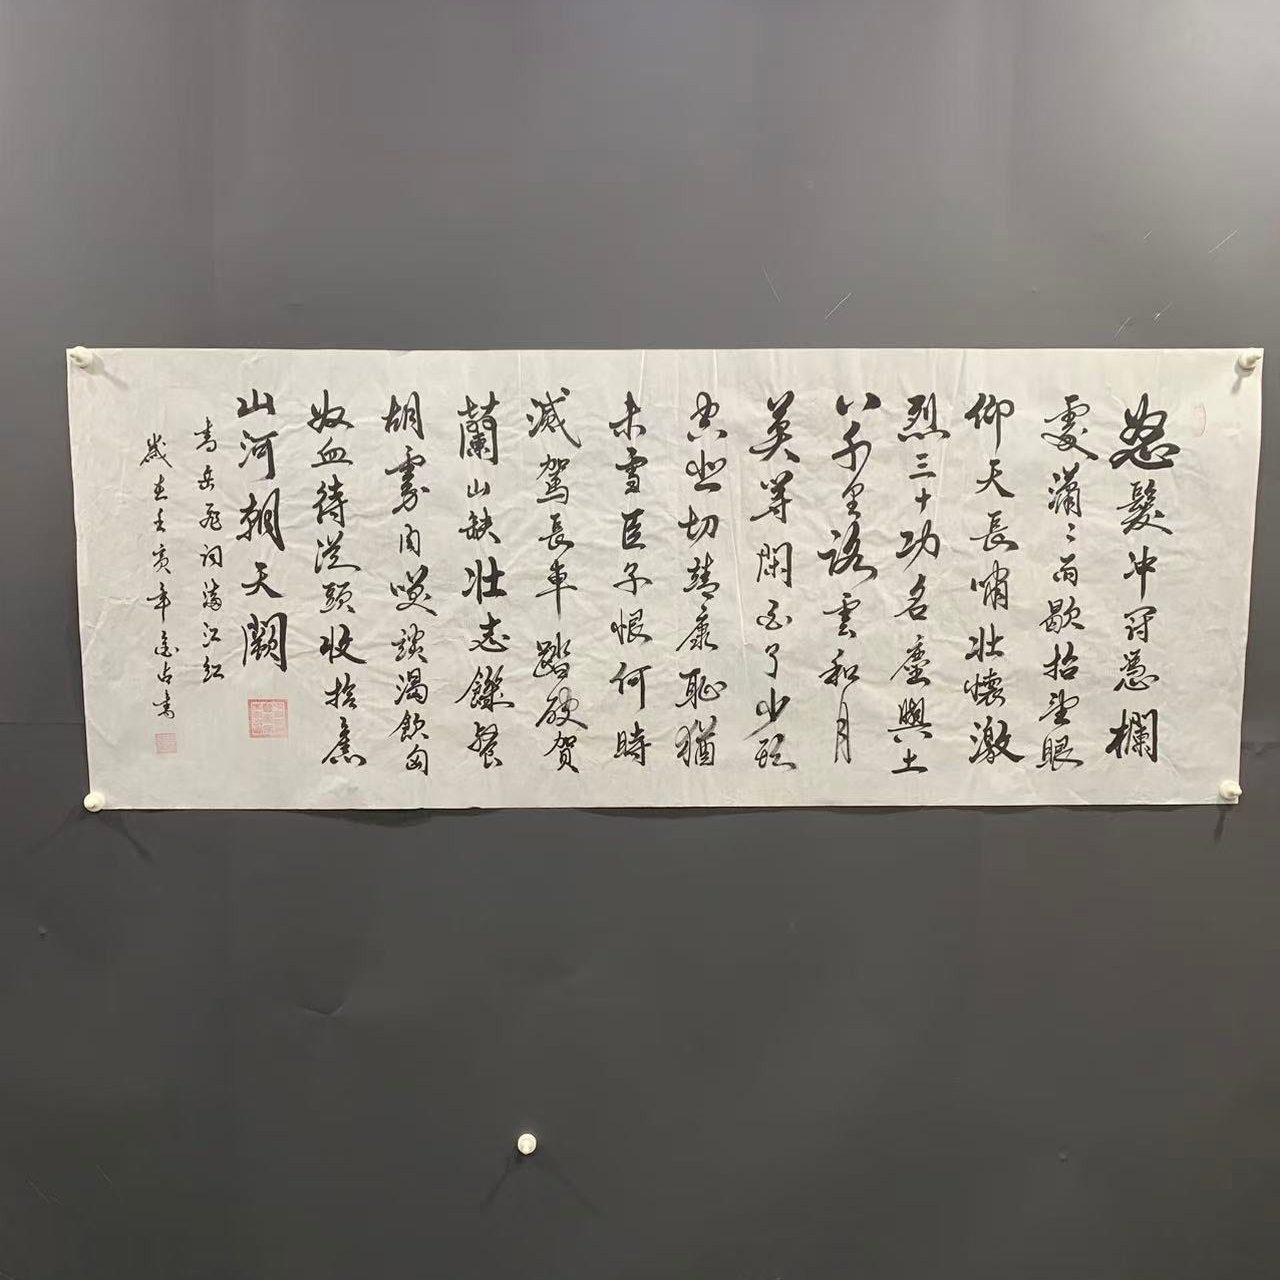 怒髮冲冠憑欄
處瀟〻雨歇抬望眼
仰天長嘯壯懷激
烈三十功名塵與土
八千里路雲和月
莫等閑白了少
空悲切靖康恥猶
未雪臣子恨何時
滅駕長車踏破賀
蘭山缺壯志饑餐
胡虜肉笑談渴飲匈
奴血待從頭收拾舊
山河朝天闕
書岳飛詞滿江紅
歲在壬寅年占書